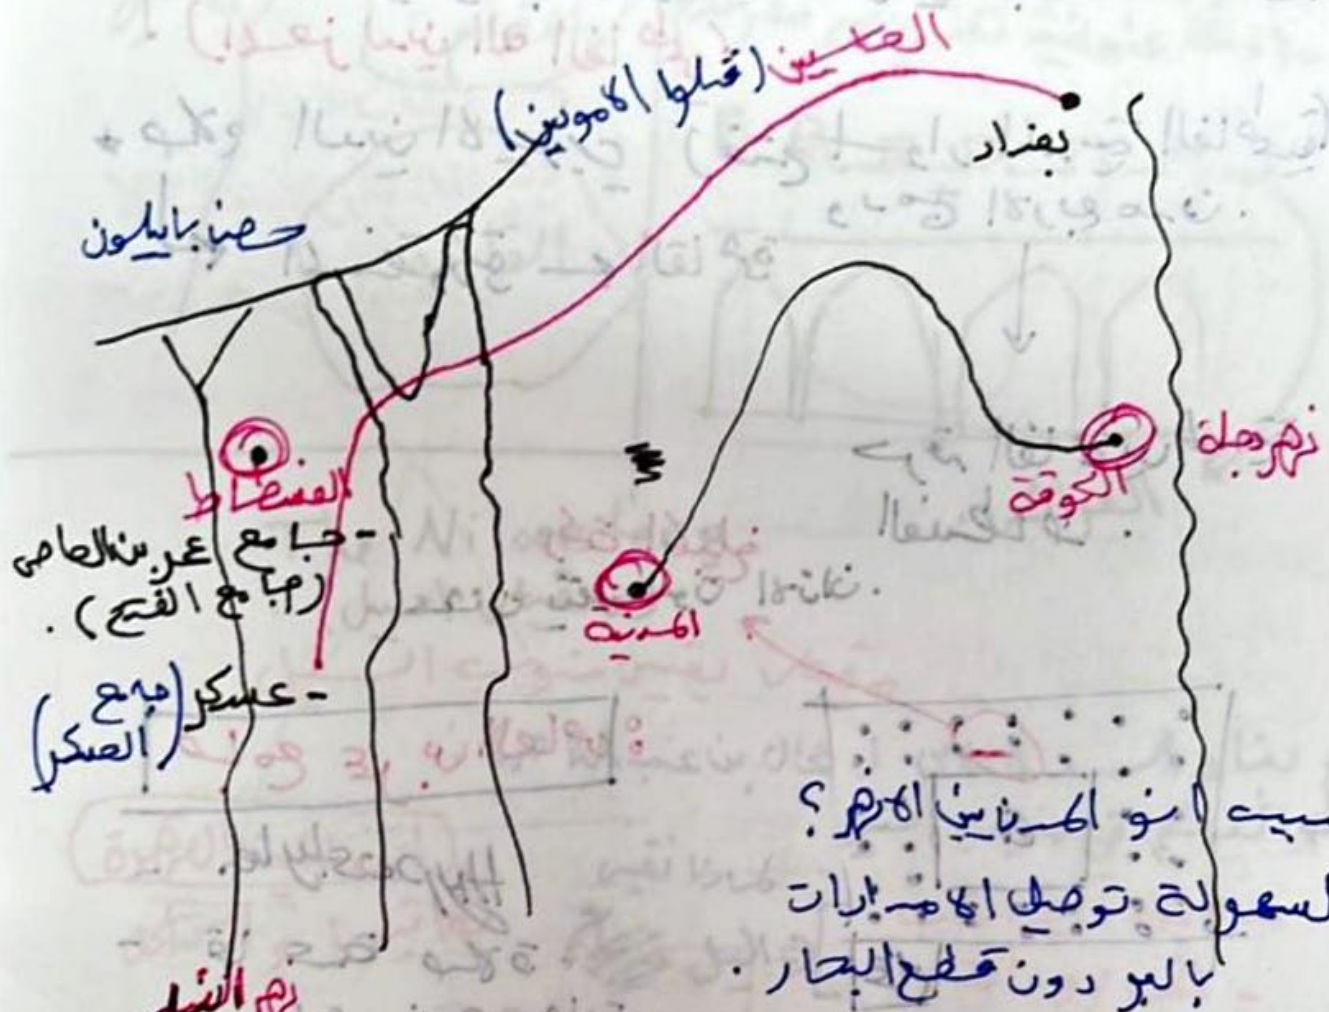 العباسيين (قتلوا الامويين)
بغداد
حصن بابليون
نهر دجلة
الكوفة
الفسطاط
- جامع عمر بن العاص
(جامع الفتح).
المدينة
- عسكر (جامع العسكر)
المدن بين الانهر؟
لسهولة توصيل الامدادات
بالبر دون قطع البحار.
نهر النيل